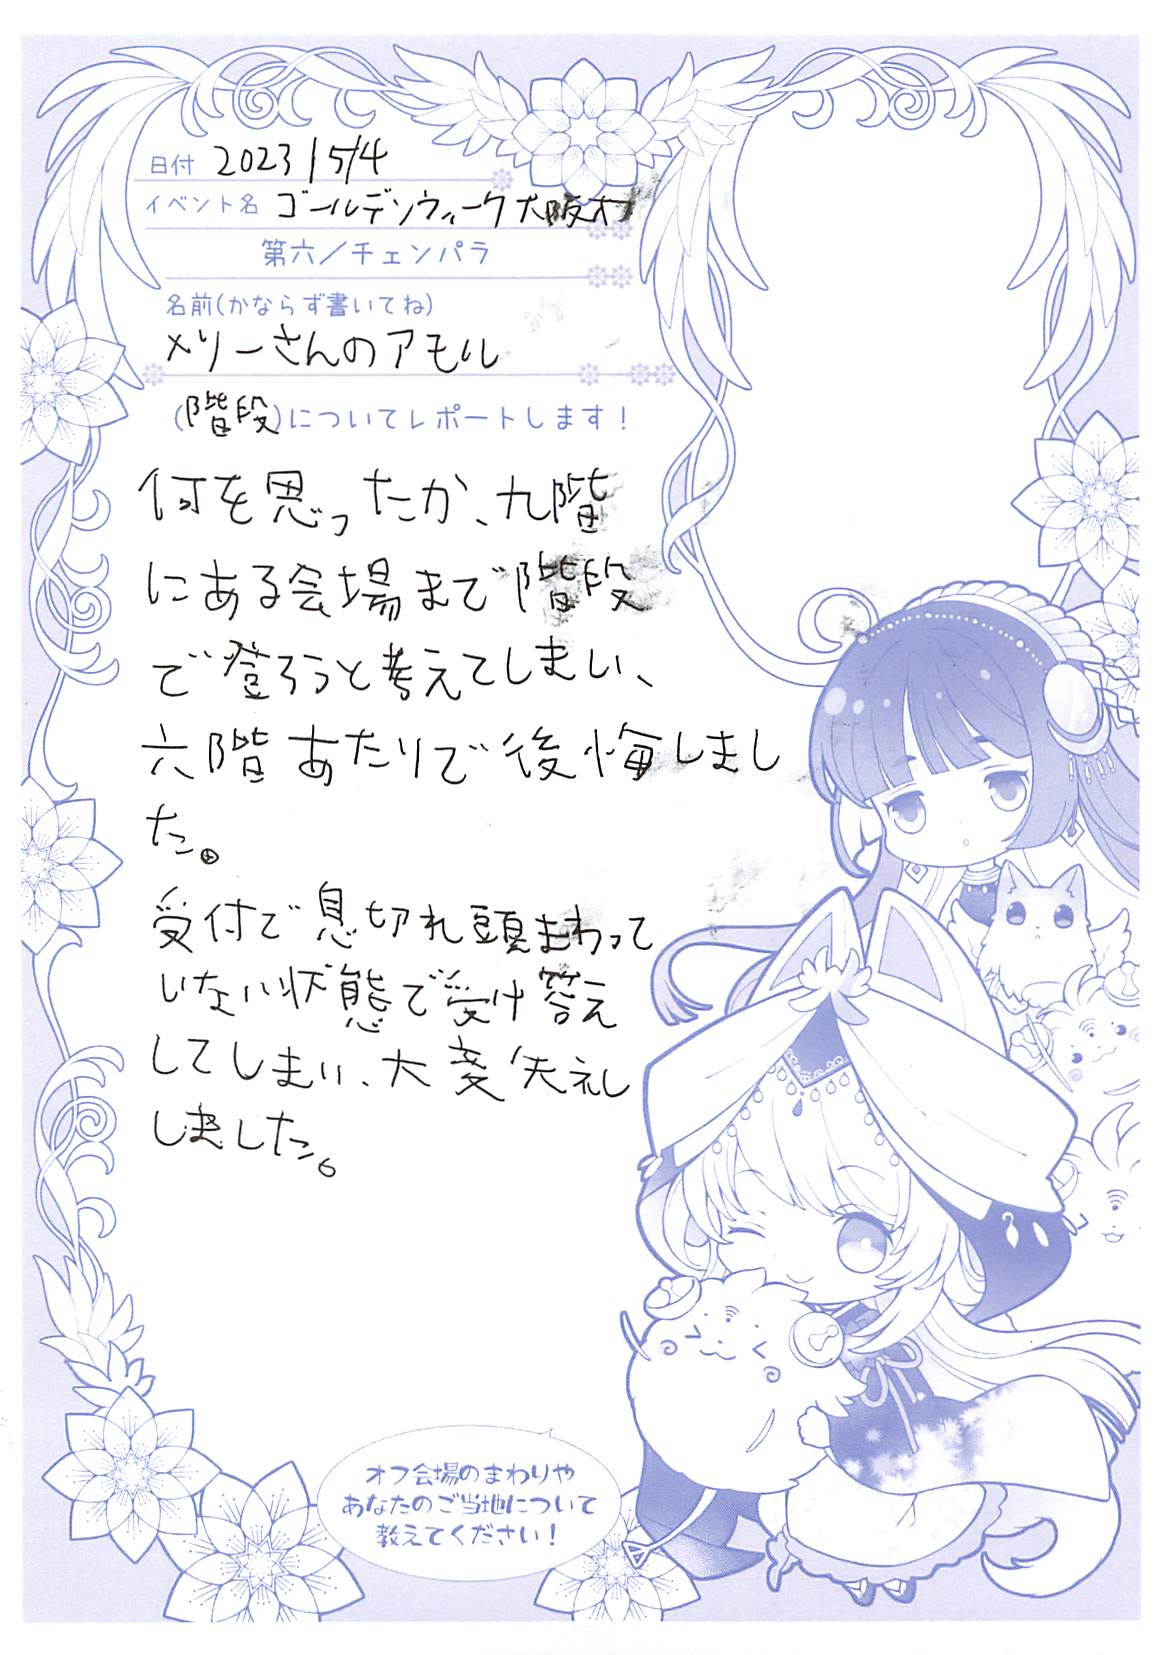 日付 2023/5/4
イベント名 ゴールデンウィーク大阪オフ
第六/チェンパラ
名前(かならず書いてね)
メリーさんのアモル
(階段)についてレポートします!
何を思ったか、九階
にある会場まで階段
で登ろうと考えてしまい、
六階あたりで後悔しまし
た。
受付で息切れ頭まわって
いない状態で受け答え
してしまい、大変失礼し
しました。
オフ会場のまわりや
あなたのご当地について
教えてください!